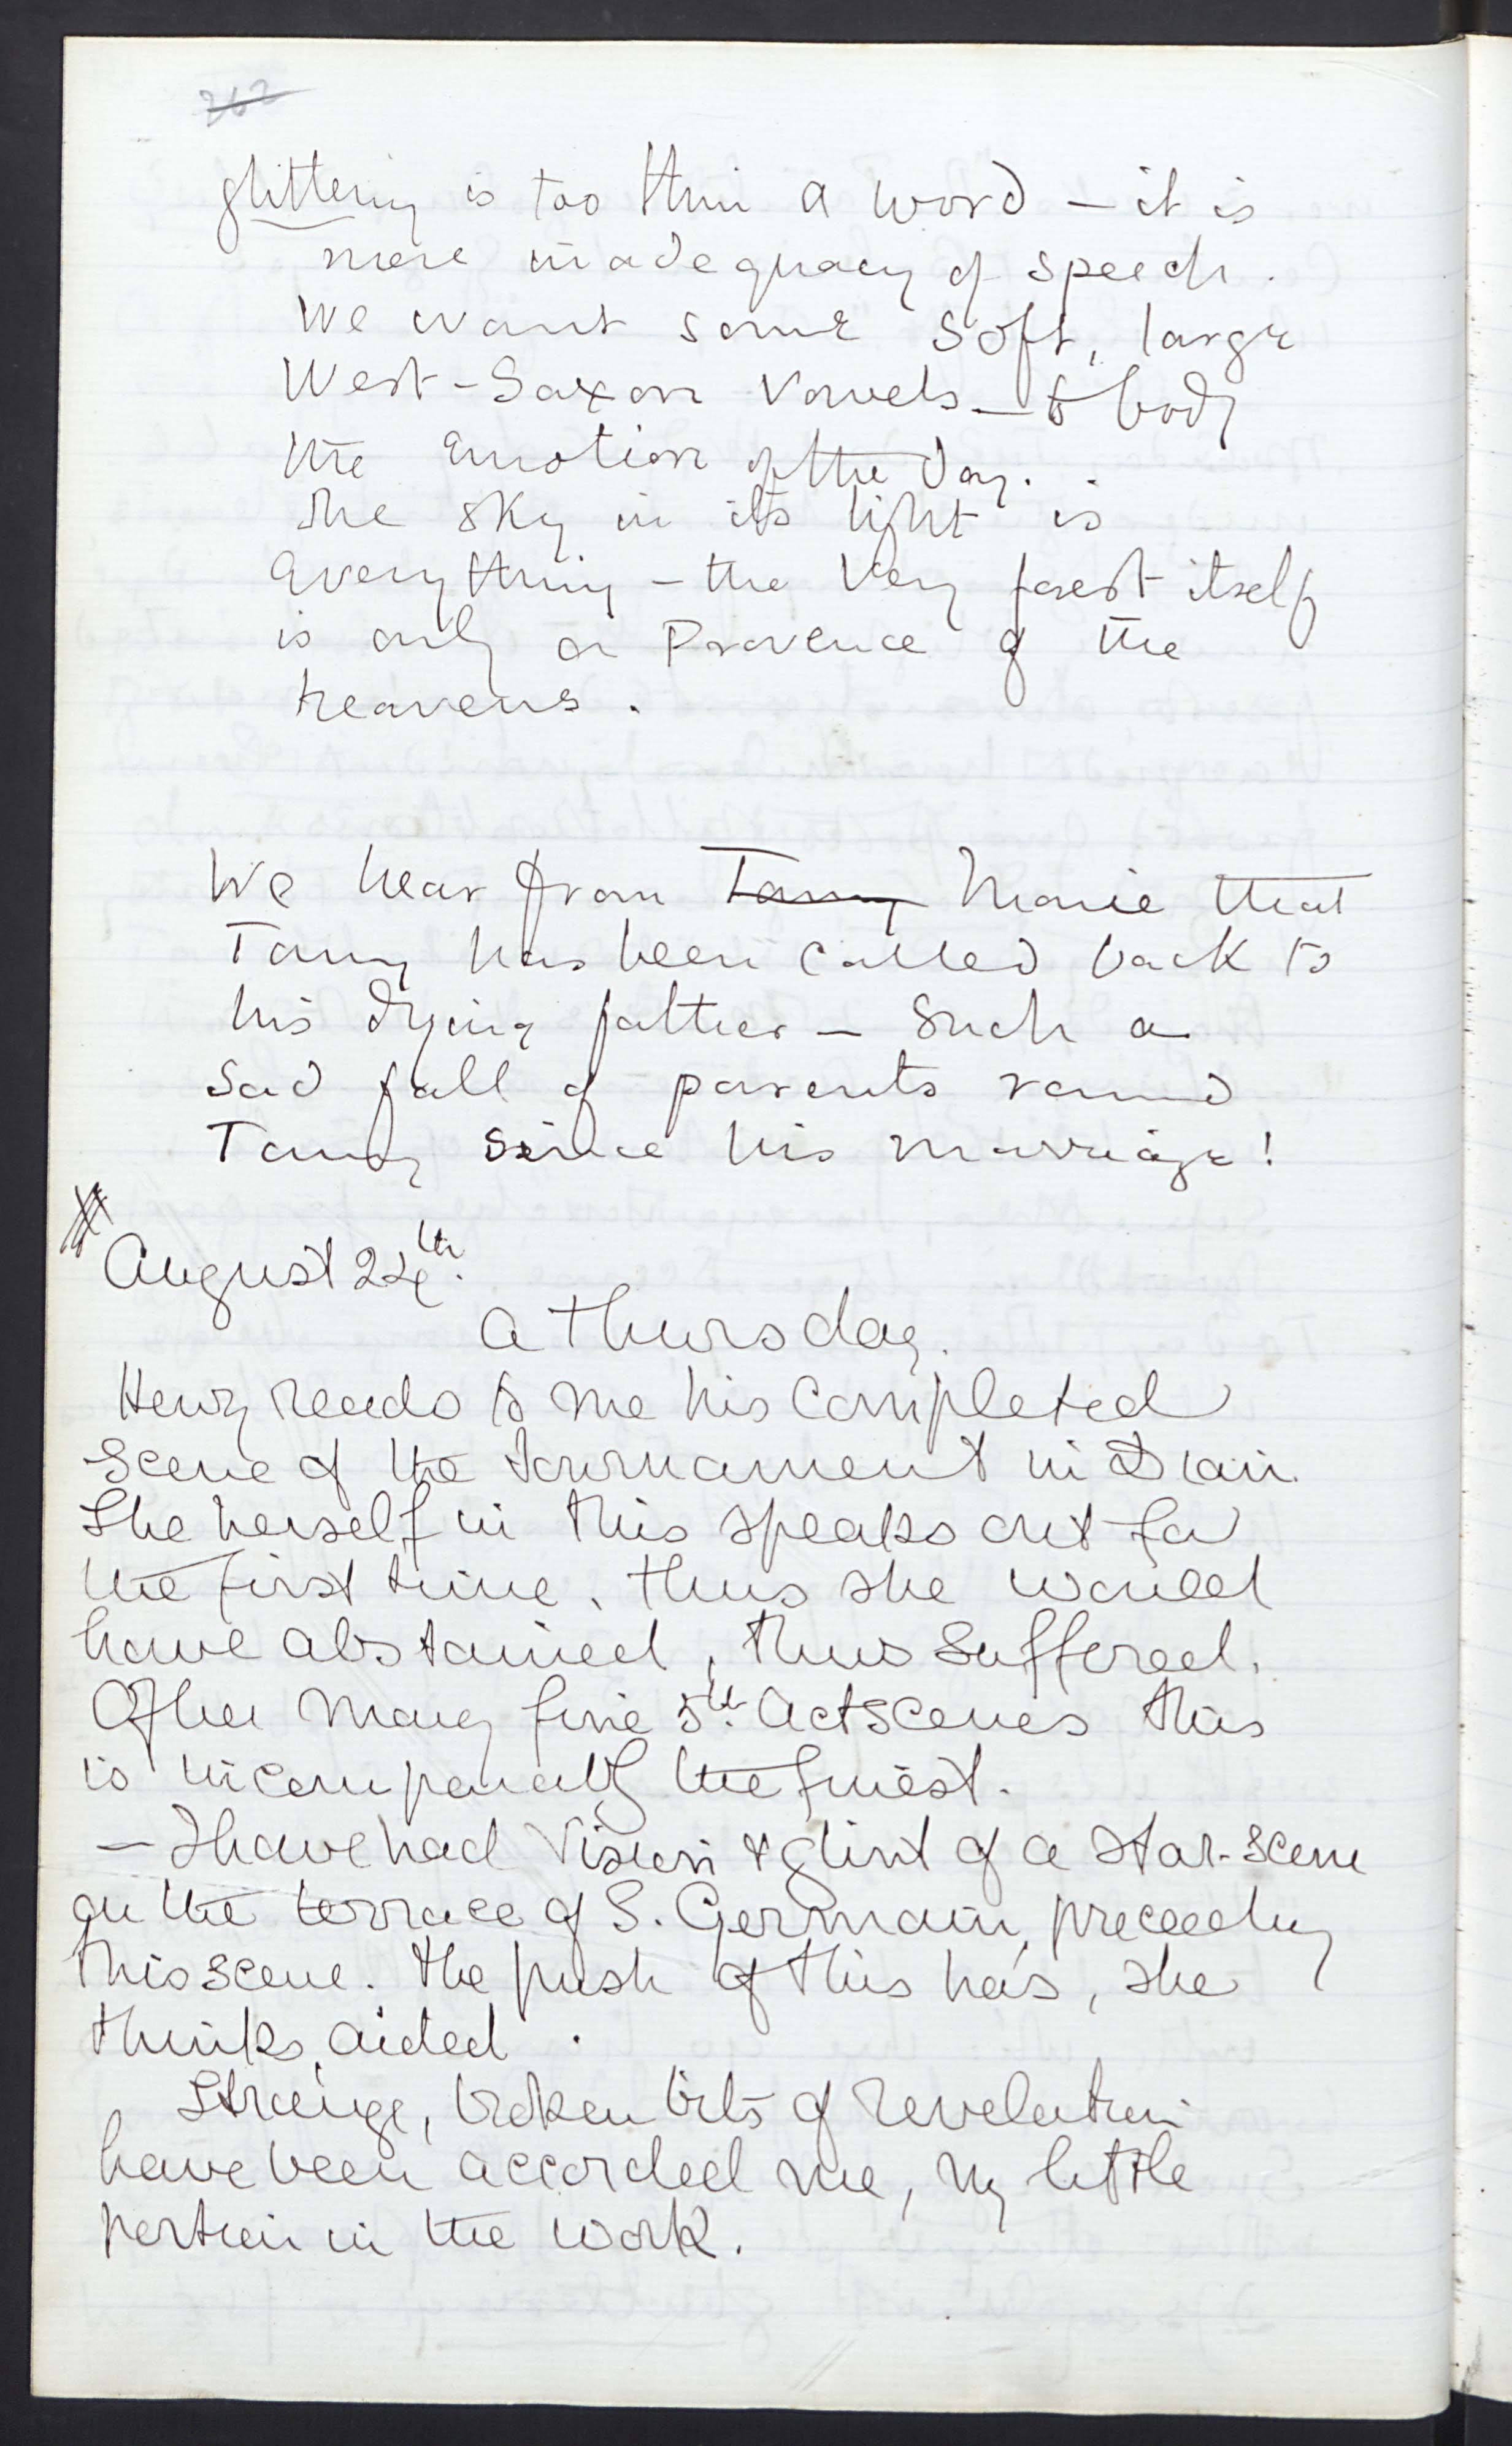 262
glittering is too thin a word – it is
mere inadequacy of speech.
We want some soft, large
West-Saxon vowels – to body
the emotion of the day. .
The sky in its light is
everything – the very forest itself
is only a Provence of the
heavens.
We hear from Tommy Marie that
Tommy has been called back to
his dying father – such a
sad fall of parents round
Tommy since his marriage!
August 24th.
A Thursday.
Henry reads to me his completed
scene of the tournament in Dian.
She herself in this speaks out for
the first time. Thus she would
have abstained, thus suffered.
Of her many fine 5th. Act scenes this
is incomparably the finest.
– I have had vision & glint of a star-scene
on the terrace of S. Germain, preceding
this scene. The push of this has, she
thinks, aided.
Strange, broken bits of revelation
have been accorded me, my little
portion in the work.